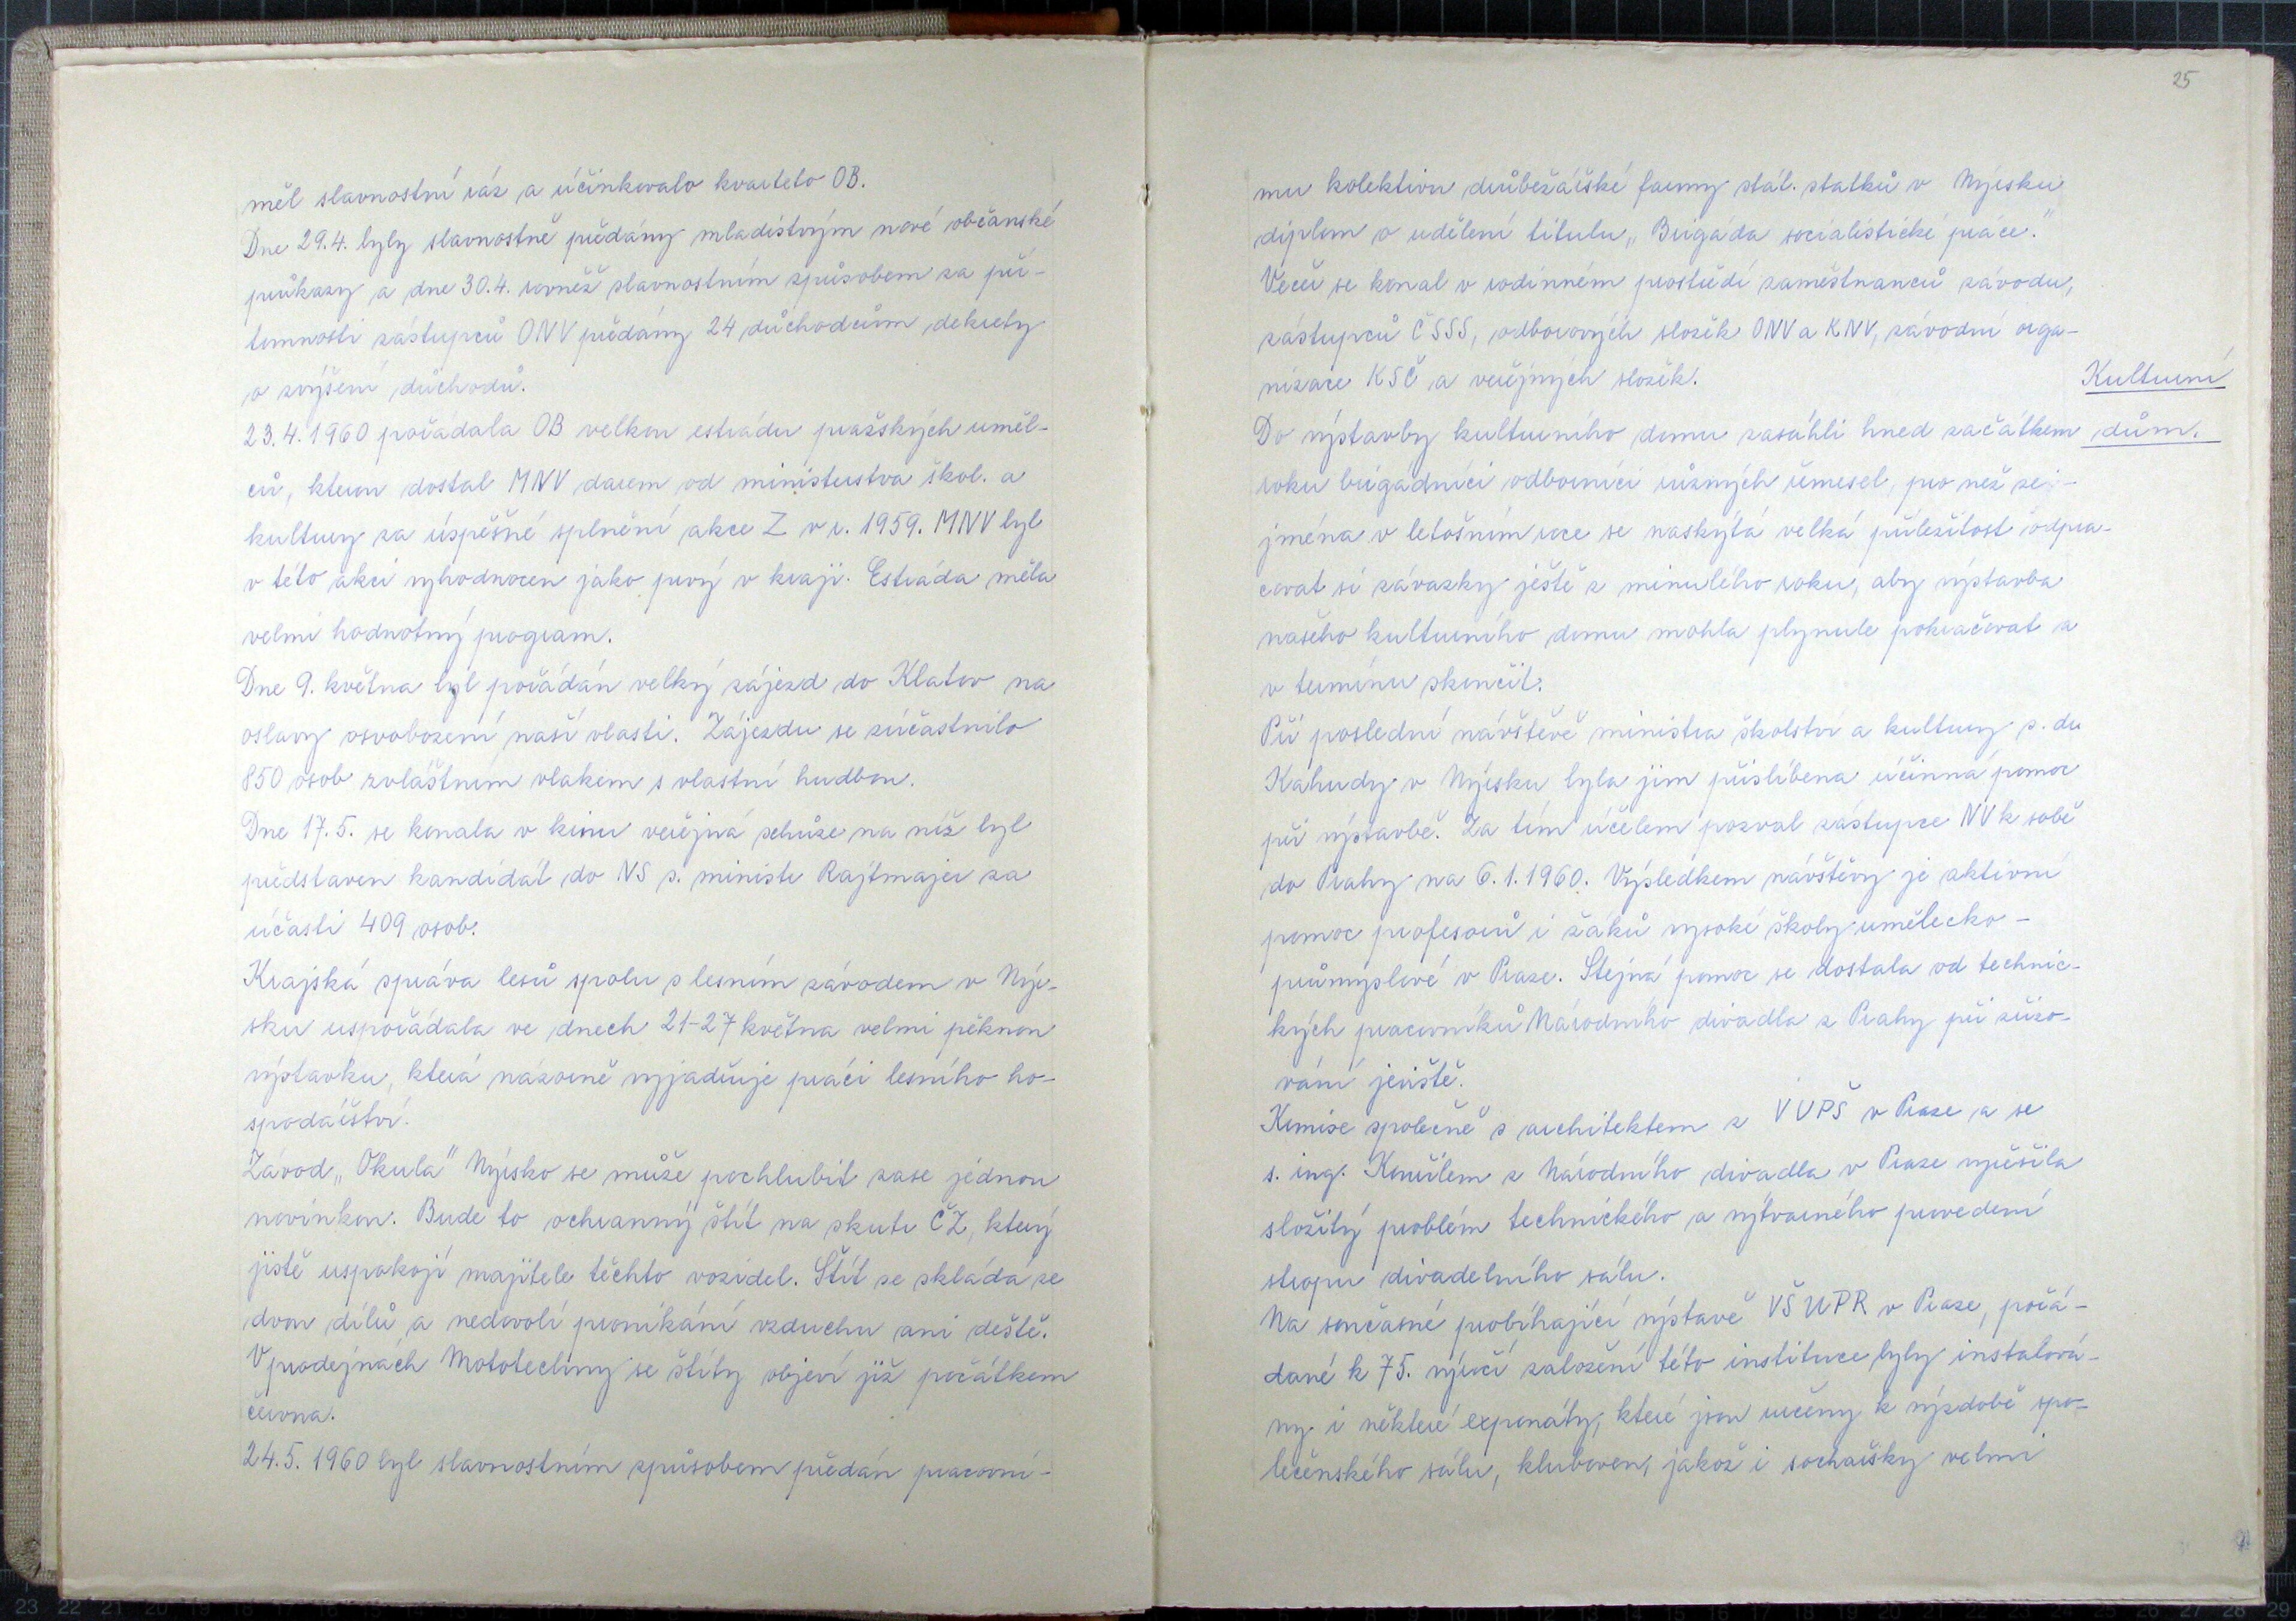 měl slavnostní ráz a účinkovalo kvarteto OB.
Dne 29.4. byly slavnostně předány mladistvým nové občanské
průkazy a dne 30.4. rovněž slavnostním způsobem za pří-
tomnosti zástupců ONV předány 24 důchodcům dekrety
o zvýšení důchodů.
23.4.1960 pořádala OB velkou estrádu pražských uměl-
ců, kterou dostal MNV darem od ministerstva škol. a
kultury za úspěšné splnění akce Z v r. 1959. MNV byl
v této akci vyhodnocen jako prvý v kraji. Estráda měla
velmi hodnotný program.
Dne 9. května byl pořádán velký zájezd do Klatov na
oslavy osvobození naší vlasti. Zájezdu se zúčastnilo
850 osob zvláštním vlakem s vlastní hudbou.
Dne 17.5. se konala v kinu veřejná schůze na níž byl
představen kandidát do NS s. ministr Rajtmajer za
účasti 409 osob.
Krajská správa lesů spolu s lesním závodem v Nýr-
sku uspořádala ve dnech 21-27 května velmi pěknou
výstavku, která názorně vyjadřuje práci lesního ho-
spodářství.
Závod „Okula" Nýrsko se může pochlubit zase jednou
novinkou. Bude to ochranný štít na skutr ČZ, který
jistě uspokojí majitele těchto vozidel. Štít se skládá ze
dvou dílů a nedovolí pronikání vzduchu ani deště.
V prodejnách Mototechny se štíty objeví již počátkem
června.
24.5. 1960 byl slavnostním způsobem předán pracovní-
25
mu kolektivu drůbežářské farmy stát. statků v Nýrsku
diplom o udělení titulu „Brigáda socialistické práce."
Večer se konal v rodinném prostředí zaměstnanců závodu,
zástupců ČSSS, odborových složek ONV a KNV, závodní orga-
nizace KSČ a veřejných složek.
Kulturní
dům.
Do výstavby kulturního domu zasáhli hned začátkem
roku brigádníci odborníci různých řemesel, pro než zej-
jména v letošním roce se naskýtá velká příležitost odpra-
covat si závazky ještě z minulého roku, aby výstavba
našeho kulturního domu mohla plynule pokračovat a
v termínu skončit.
Při poslední návštěvě ministra školství a kultury s. dr.
Kahudy v Nýrsku byla jim přislíbena účinná pomoc
při výstavbě. Za tím účelem pozval zástupce NV k sobě
do Prahy na 6.1.1960. Výsledkem návštěvy je aktivní
pomoc profesorů i žáků vysoké školy umělecko-
průmyslové v Praze. Stejná pomoc se dostala od technic-
kých pracovníků Národního divadla z Prahy při zřizo-
vání jeviště.
Komise společně s architektem z VUPŠ v Praze a se
s. ing. Kouřilem z Národního divadla v Praze vyřešila
složitý problém technického a výtvarného provedení
stropu divadelního sálu.
Na současné probíhající výstavě VŠUPR v Praze, pořá-
dané k 75. výročí založení této instituce byly instalová-
ny i některé exponáty, které jsou určeny k výzdobě spo-
lečenského sálu, kluboven, jakož i sochařsky velmi